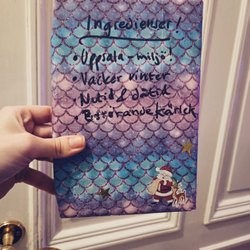 Ingredienser!
• Uppsala-miljö!
• Vacker vinter
• Nutid & dåtid
• Berörande kärlek